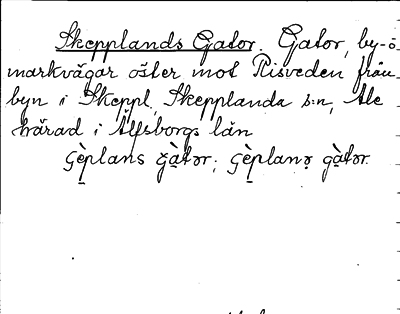 Skepplands Gator. Gator, by- o
markvägar öster mot Risveden från
byn i Skeppl. Skepplanda s:n, Ale
härad i Älfsborgs län
gèplans gàtər; gèplanə gàtər.